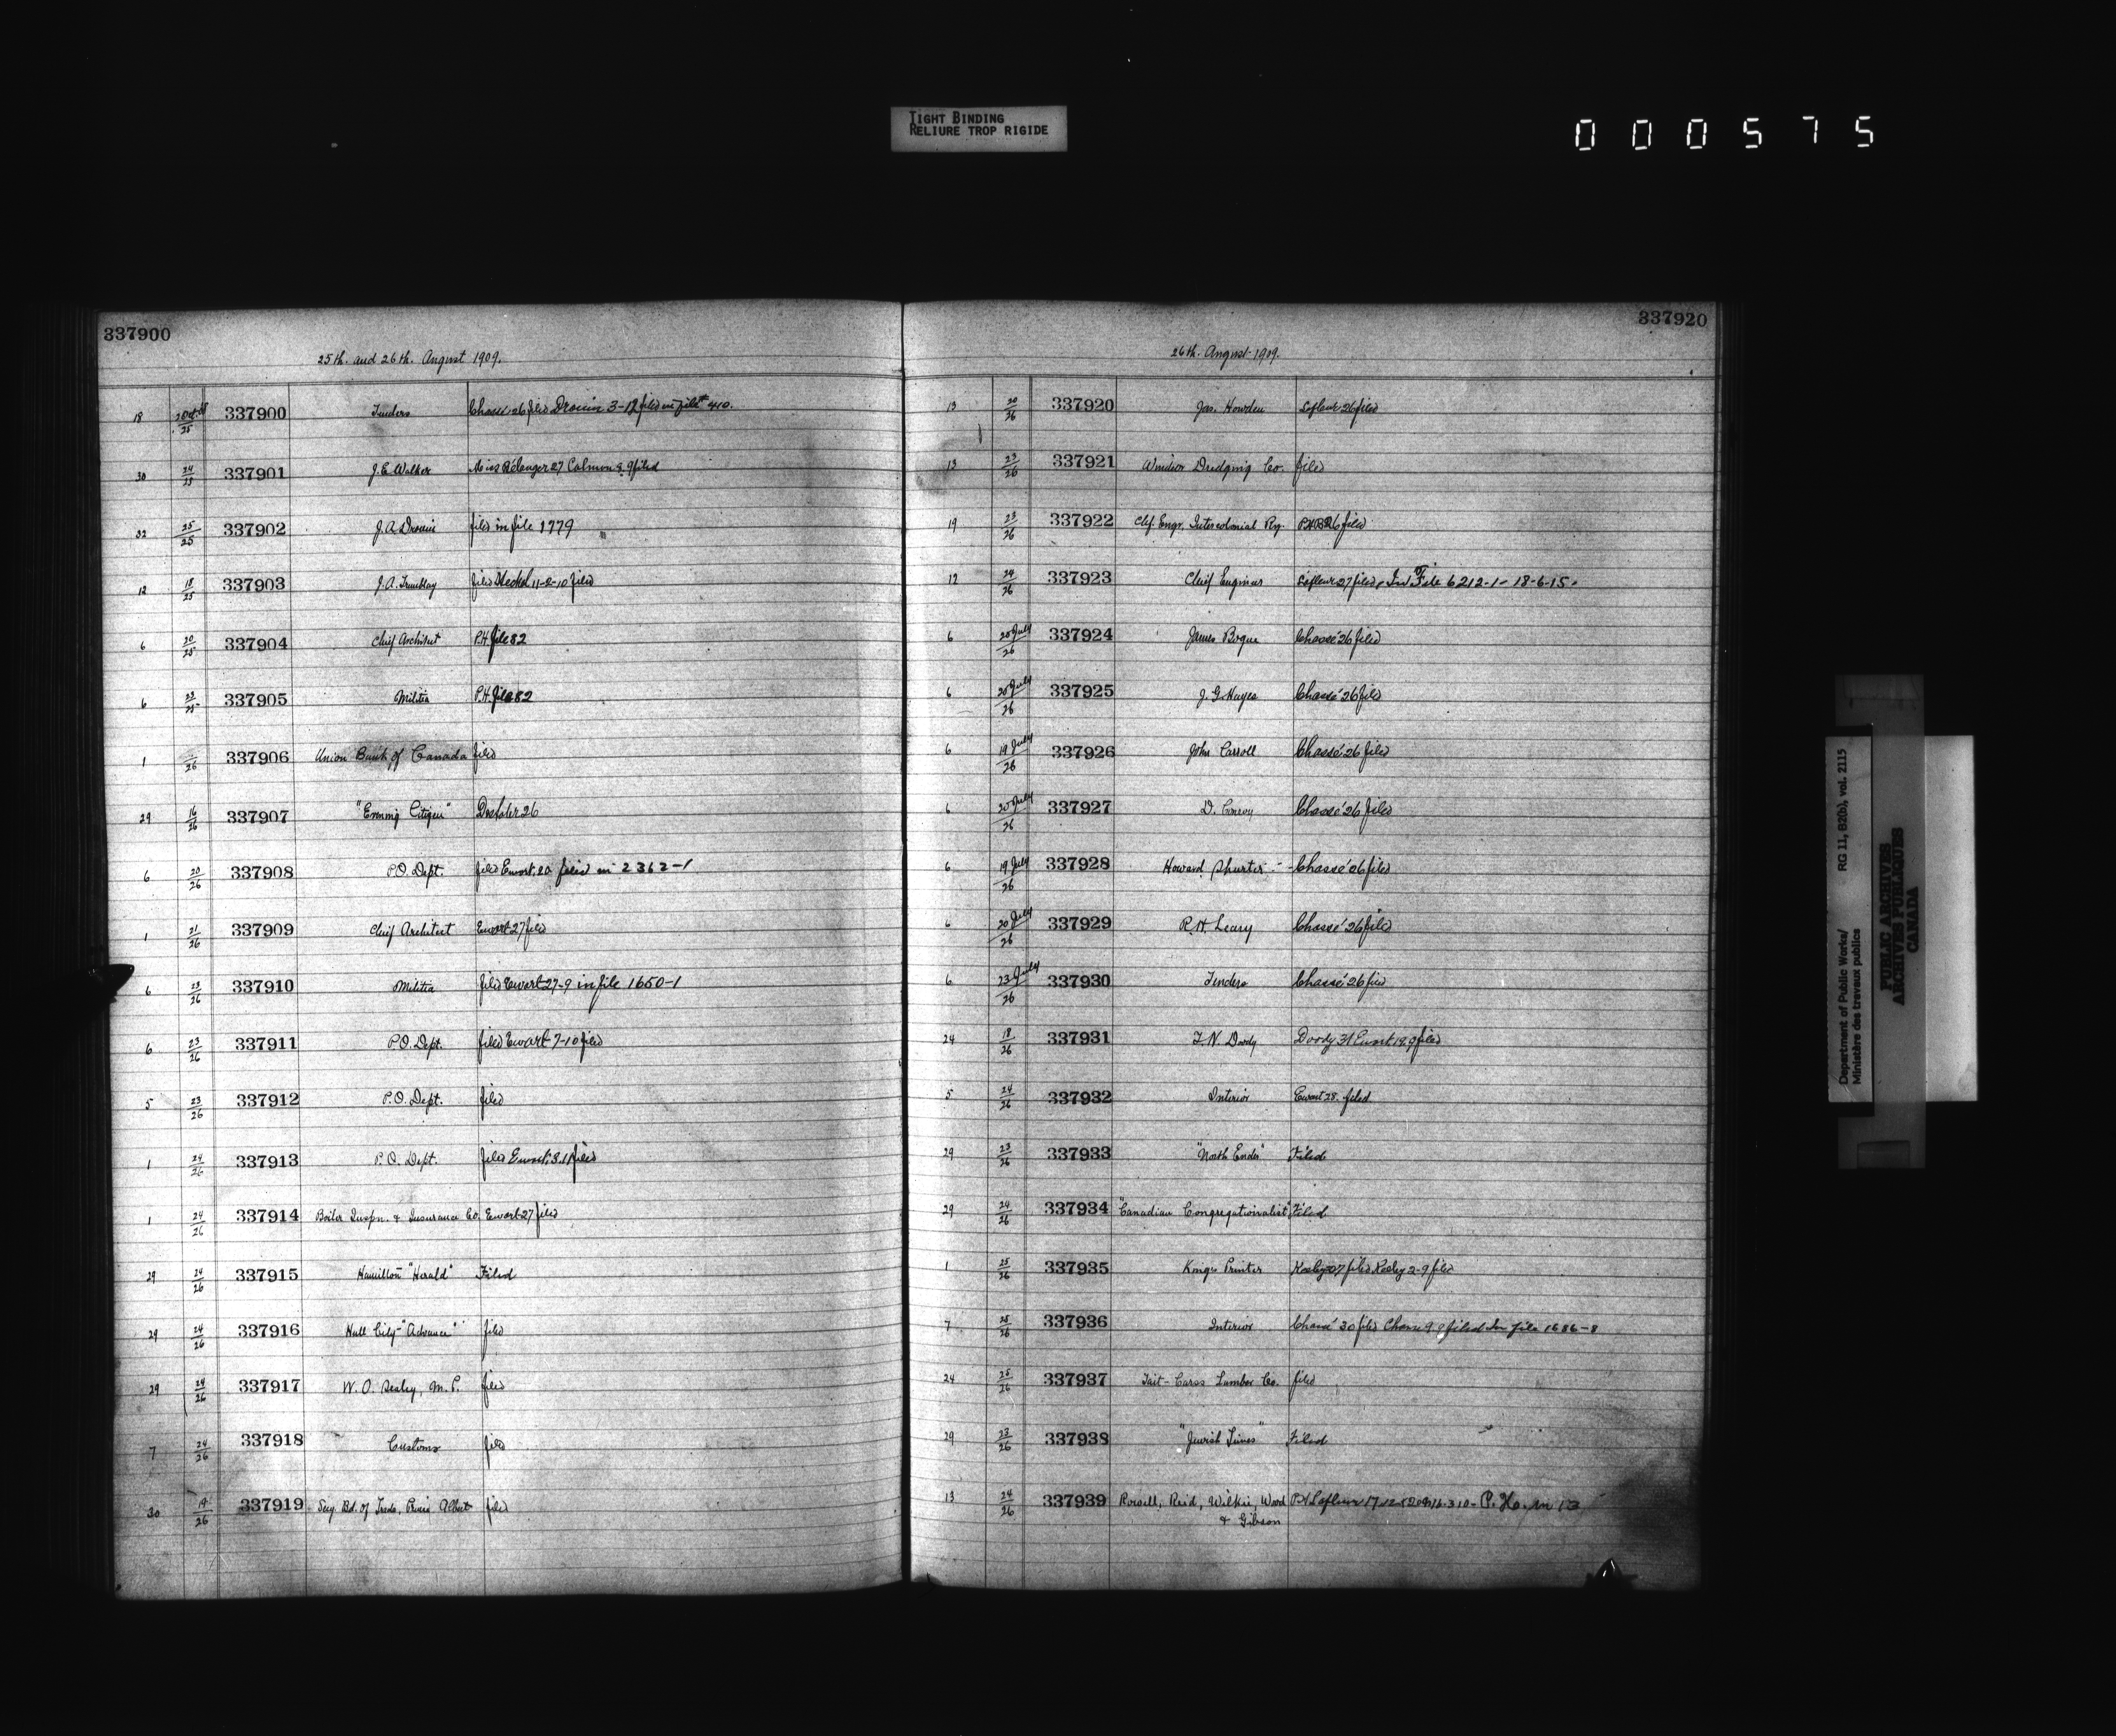 TIGHT BINDING
RELIURE TROP RIGIDE
000575
337900
25th. and 26th. August 1909.
18 25 337900 Tenders Chassé 26 filed Drouin 3-12 filed in file 410.
30 24/25 337901 J. E. Walker Miss Bélanger 27 9 filed
32 25/25 337902 J. A. Drouin filed in file 1779
12 18/25 337903 J. A. Tremblay filed 11-2-10 filed
6 20/25 337904 Chief Architect P.H. file 82
6 23/25 337905 Militia P.H. file 82
1 26 337906 Union Bank of Canada filed
29 16/26 337907 "Evening Citizen" 26
6 20/26 337908 P.O. Dept. filed Ewart filed in 2362-1
1 21/26 337909 Chief Architect Ewart 27 filed
6 23/26 337910 Militia filed Ewart 27-9 in file 1650-1
6 23/26 337911 P.O. Dept. filed Ewart 7-10 filed
5 23/26 337912 P.O. Dept. filed
1 24/26 337913 P.O. Dept. filed Ewart 3.11 filed
1 24/26 337914 Boiler Inspn. & Insurance Co. Ewart 27 filed
29 24/26 337915 Hamilton "Herald" Filed
29 24/26 337916 Hull City "Advance" filed
29 24/26 337917 W. O. Sealey, M. P. filed
7 24/26 337918 Customs filed
30 19/26 337919 Secy. Bd. of Trade, Prince Albert filed
337920
26th. August 1909.
13 20/26 337920 Jas. Howden Lafleur 26 filed
13 23/26 337921 Windsor Dredging Co. filed
19 23/26 337922 Chf. Engr. Intercolonial Ry. 26 filed
12 24/26 337923 Chief Engineer Lafleur 27 filed, In File 6212-1- 18-6-15.
6 20 July/26 337924 James Bogue Chassé 26 filed
6 20 July/26 337925 J. G. Hayes Chassé 26 filed
6 19 July/26 337926 John Carroll Chassé 26 filed
6 20 July/26 337927 D. Conroy Chassé 26 filed
6 19 July/26 337928 Howard Shurter - Chassé 26 filed
6 20 July/26 337929 R. H. Leary Chassé 26 filed
6 23 July/26 337930 Tenders Chassé 26 filed
24 18/26 337931 T. N. Doody Doody 31 Ewart 12.9 filed
5 24/26 337932 Interior Ewart 28. filed
29 23/26 337933 "North Ender" Filed
29 24/26 337934 "Canadian Congregationalist" Filed
1 25/26 337935 Kings Printer Keeley 27 filed Keeley 2-9 filed
7 25/26 337936 Interior Chassé 30 filed Chassé 9 9 filed In file 1686-8
24 25/26 337937 Tait-Carss Lumber Co. filed
29 23/26 337938 "Jewish Times" Filed
13 24/26 337939 Rowell, Reid, Wilkie, Wood P.H. Lafleur 17.12 16.3.10- P. Ho. in 13
& Gibson
Department of Public Works/ RG 11, B2(b), vol. 2115
Ministère des travaux publics
PUBLIC ARCHIVES
ARCHIVES PUBLIQUES
CANADA